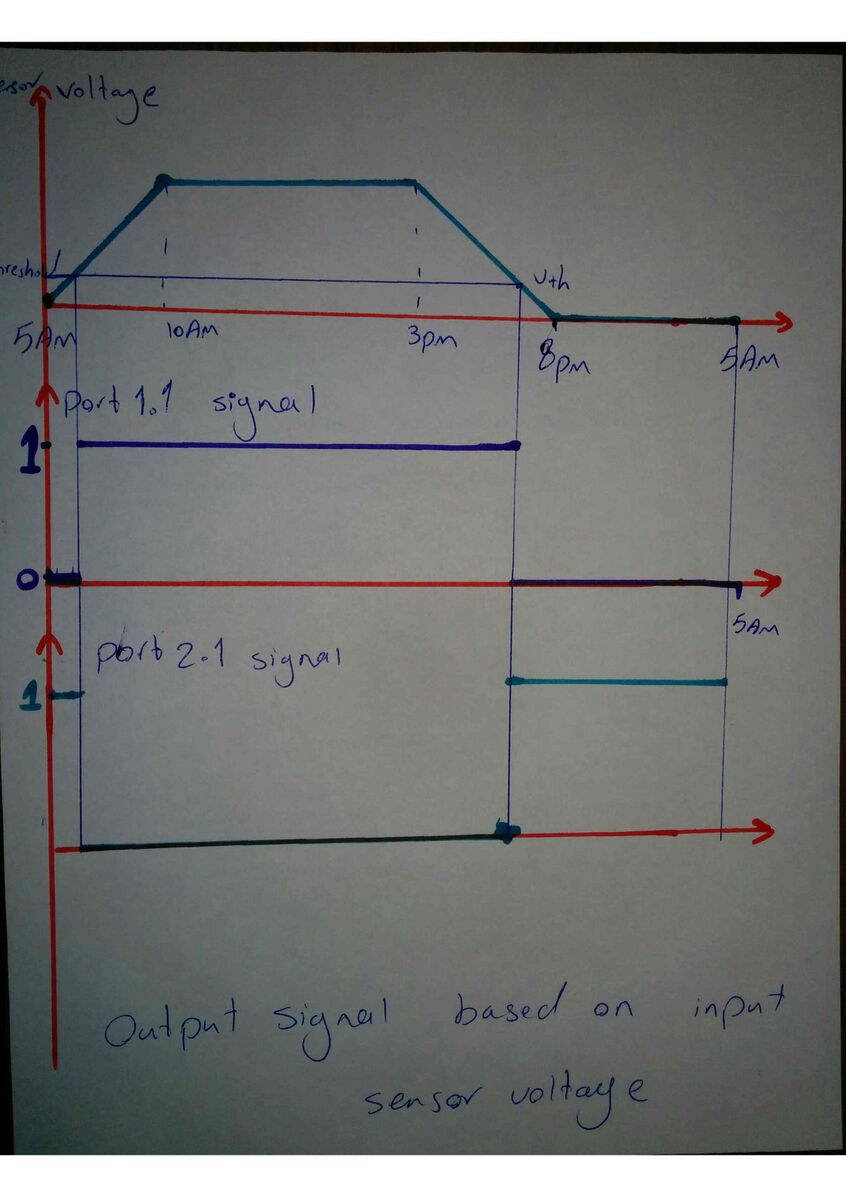 voltage
Vth
5AM
10AM
3pm
8pm
5AM
port 1.1 signal
1
0
5AM
port 2.1 signal
1
Output signal based on input
sensor voltage